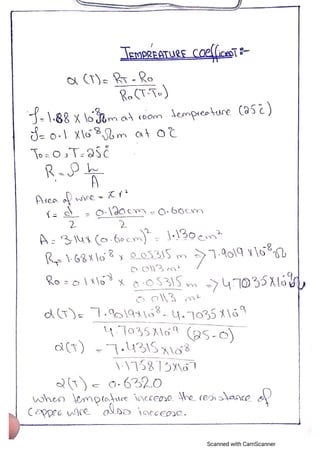 TEMPREATURE coefficient:-
α (T) = RT - Ro
Ro (T-To)
J = 1.68 X 10⁻⁸ Ωm at room tempreature (25c)
J = 0.1 X10⁻⁸ Ωm at 0c
To = 0 , T = 25c
R = ρ L
A
Area of wire = π r²
r = d = 0.120cm = 0.60cm
2 2
A = 3.14 x (0.60cm)² = 1.130cm²
RT = 1.68x10⁻⁸ x 0.05315 m => 7.9019 x10⁻⁸ Ω
0.0113 m²
Ro = 0.1 x10⁻⁸ x 0.05315 m => 4.7035x10⁻⁹ Ω
0.0113 m²
α(T) = 7.9019x10⁻⁸ - 4.7035x10⁻⁹
4.7035x10⁻⁹ (25-0)
α(T) = 7.4315x10⁻⁸
1.175875x10⁻⁷
α(T) = 0.6320
when tempreature increase the resistance of
Copper wire also increase.
Scanned with CamScanner